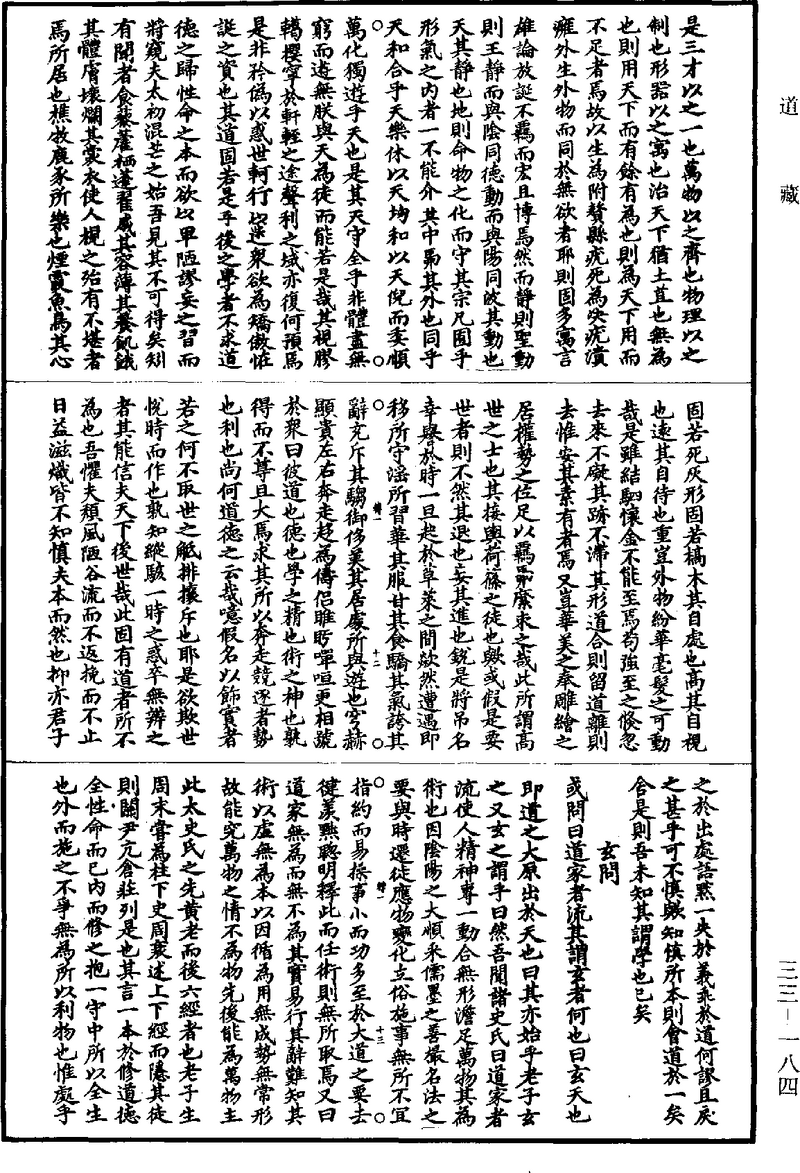 道藏
三三－一八四
是三才以之一也萬物以之齊也物理以之
制也形器以之寓也治天下猶土苴也無為
也則用天下而有餘有為也則為天下用而
不足者焉故以生為附贅縣疣死為決疣潰
癰外生外物而同於無欲者耶則固多寓言
雄論放誕不羈而宏且博焉然而靜則聖動
則王靜而與陰同德動而與陽同波其動也
天其靜也地則命物之化而守其宗凡囿乎
形氣之內者一不能介其中焉其外也同乎
天和合乎天樂休以天均和以天倪而委順
萬化獨遊乎天也是其天守全乎非體盡無
窮而遊無朕與天為徒而能若是哉其視膠
轕攖寧於軒輊之途聲利之域亦復何預焉
是非矜偽以惑世軻行以迷眾欲為矯傲怪
誕之資也其道固若是乎後之學者不求道
德之歸性命之本而欲以卑陋謬妄之習而
將窺夫太初混芒之始吾見其不可得矣矧
有閑者食藜藿栖蓬翟戚其容薄其養飢餓
其體膚壞爛其裳衣使人視之殆有不堪者
焉所居也樵牧鹿豕所樂也煙霞魚鳥其心
固若死灰形固若槁木其自處也高其自視
也遠其自待也重宜外物紛華毫髮之可動
哉是雖結駟懷金不能至焉苟強至之倏忽
去來不礙其跡不滯其形道合則留道離則
去惟安其素有者焉又豈華美之奉雕繪之
居權勢之位足以羈帛縻束之哉此所謂高
世之士也其接輿荷蓧之徒也歟或假是要
世者則不然其退也妄其進也銳是將吊名
幸譽於時一旦起於草萊之間歘然遭遇即
移所守滛所習華其服甘其食驕其氣誇其
辭充斥其騶御侈美其居處所與遊也穹赫
顯貴左右奔走趍為儔侶睢盱嘽咺更相號
於眾曰彼道也德也學之精也術之神也孰
得而不尊且大焉求其所以奔走競逐者勢
也利也尚何道德之云哉噫假名以飾實者
若之何不取世之觝排攘斥也耶是欲欺世
恱時而作也孰知縱駭一時之惑卒無辨之
者其能信夫天下後世哉此固有道者所不
為也吾懼夫頹風陋谷流而不返挽而不止
日益滋熾皆不知慎夫本而然也抑亦君子
之於出處語默一失於義乖於道何謬且戾
之甚乎可不慎歟知慎所本則會道於一矣
舍是則吾未知其謂學也已矣
玄問
或問曰道家者流其謂玄者何也曰玄天也
即道之大原出於天也曰其亦始乎老子玄
之又玄之謂乎曰然吾聞諸史氏曰道家者
流使人精神專一動合無形澹足萬物其為
術也因陰陽之大順采儒墨之善撮名法之
要與時遷徙應物變化立俗施事無所不宜
指約而易操事小而功多至於大道之要去
健羨黜聰明釋此而任術則無所取焉又曰
道家無為而無不為其實易行其辭難知其
術以虛無為本以因循為用無成勢無常形
故能究萬物之情不為物先後能為萬物主
此太史氏之先黃老而後六經者也老子生
周末嘗為柱下史周衰述上下經而隱其徒
則關尹亢倉莊列是也其言一本於修道德
全性命而已內而修之抱一守中所以全生
也外而施之不爭無為所以利物也惟處乎